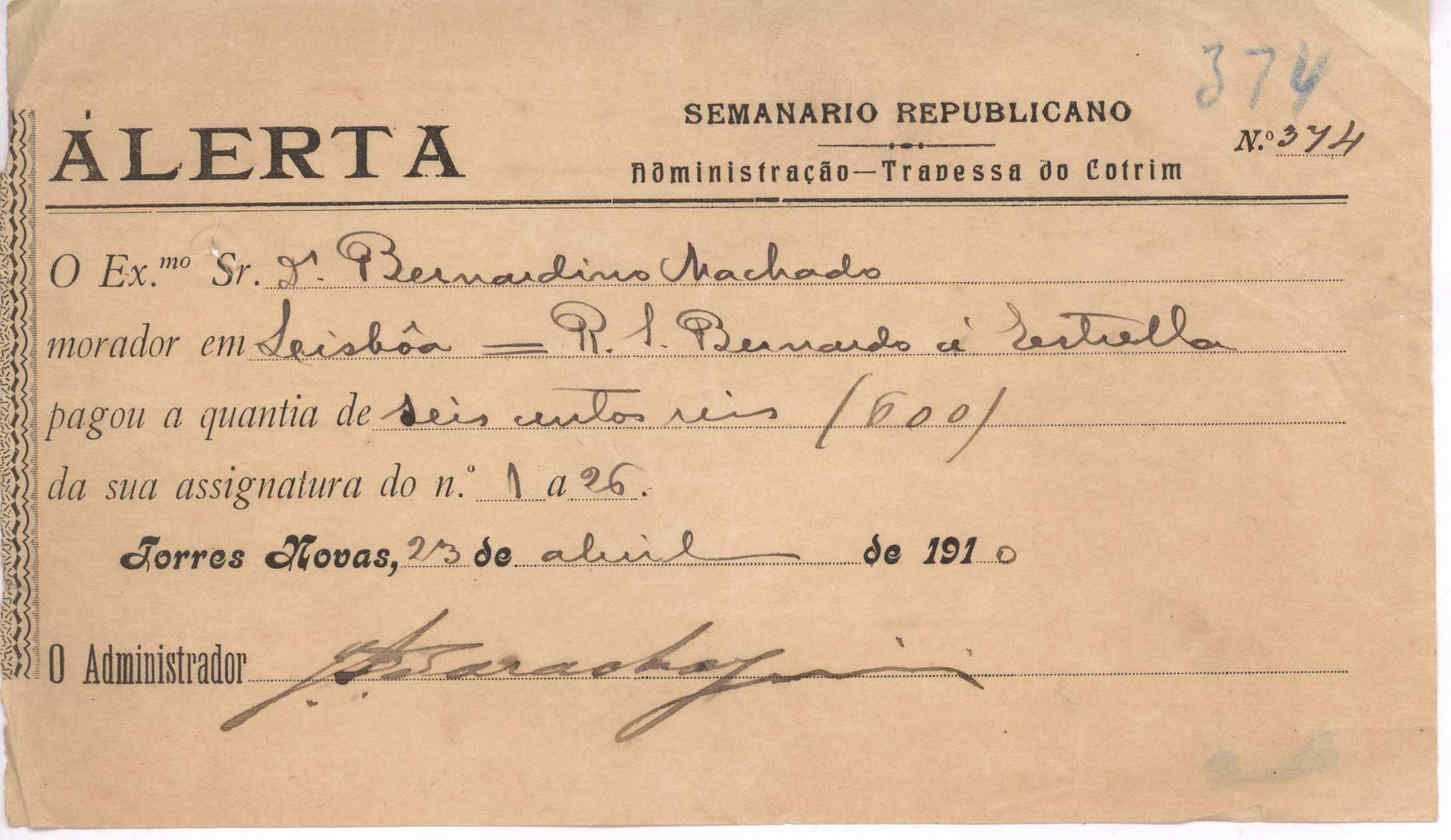 374
ÁLERTA
SEMANARIO REPUBLICANO
Administração—Travessa do Cotrim
N.º 374
O Ex.mo Sr. Dr. Bernardino Machado
morador em Leisbôa = R. S. Bernardo á Estrella
pagou a quantia de seis centos reis (600)
da sua assignatura do n.º 1 a 26.
Torres Novas, 23 de abril de 1910
O Administrador